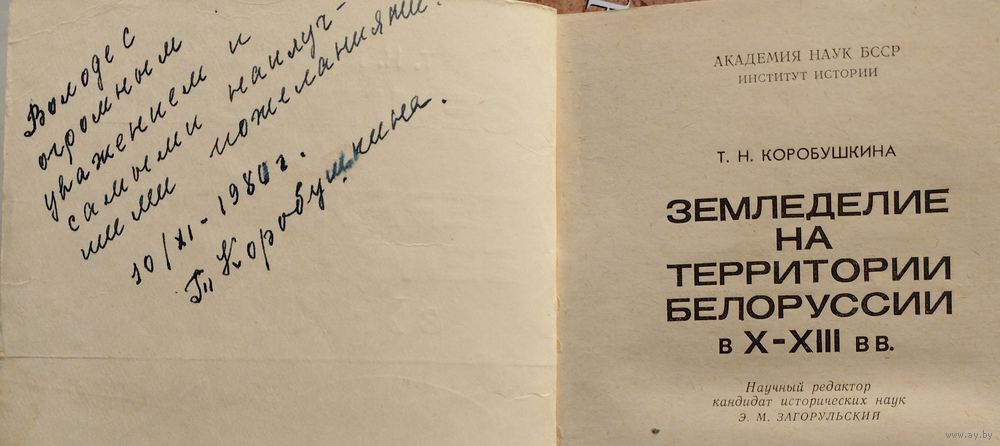 Володе с
огромным
уважением и
самыми наилуч-
шими пожеланиями.
10/XI-1980 г.
Т. Коробушкина
АКАДЕМИЯ НАУК БССР
ИНСТИТУТ ИСТОРИИ
Т. Н. КОРОБУШКИНА
ЗЕМЛЕДЕЛИЕ
НА
ТЕРРИТОРИИ
БЕЛОРУССИИ
в X-XIII вв.
Научный редактор
кандидат исторических наук
Э. М. ЗАГОРУЛЬСКИЙ
www.ay.by